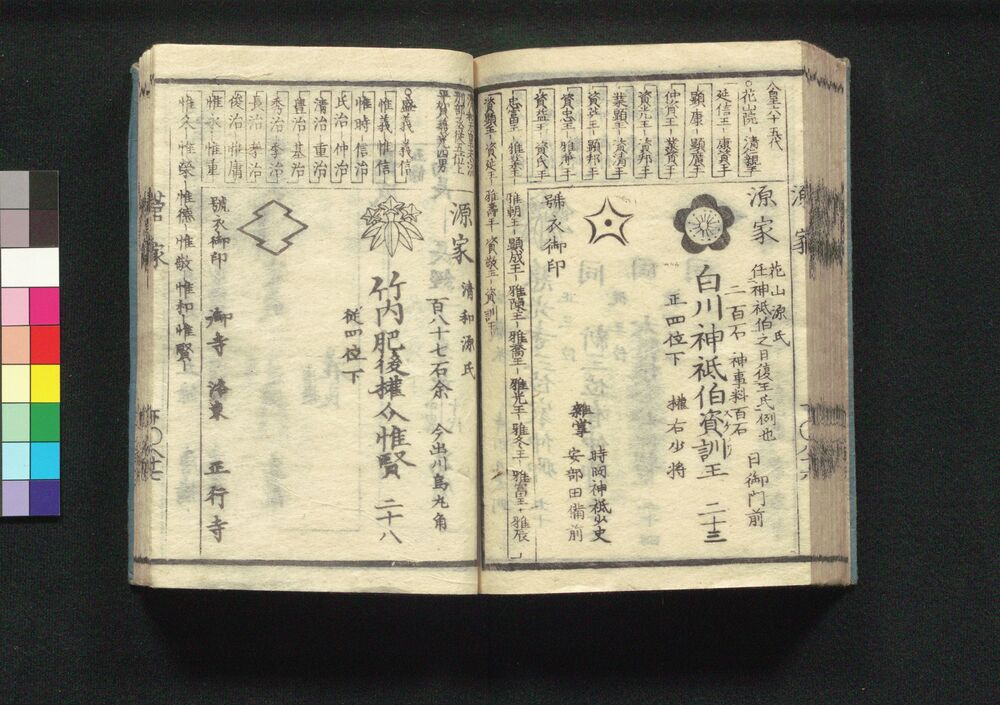 源家
人皇六十五代
花山院
延信王
顕康
顕廣王
仲資王
業資王
資光王
資邦王
業顕王
資清王
資英王
顕邦王
資忠王
雅兼王
資益王
資氏王
忠富王
雅業王
雅朝王
顕成王
雅陳王
雅喬王
雅光王
雅冬王
雅富王
雅辰
資顕王
資延王
雅壽王
資敬王
資訓
源家
花山源氏
任神祇伯之日復王氏例也
二百石
神事料百石
日御門前
白川神祇伯資訓王
二十三
正四位下
權右少将
號衣御印
雑掌
時岡神祇少史
安部田備前
盛義
義信
惟義
惟信
惟時
信治
氏治
仲治
清治
重治
豊治
基治
秀治
季治
長治
孝治
俊治
惟庸
惟永
惟重
惟久
惟榮
惟徳
惟敬
惟和
惟賢
源家
清和源氏
百八十七石余
今出川烏丸角
竹内肥後權介惟賢
二十八
従四位下
號衣御印
御寺
洛東
正行寺